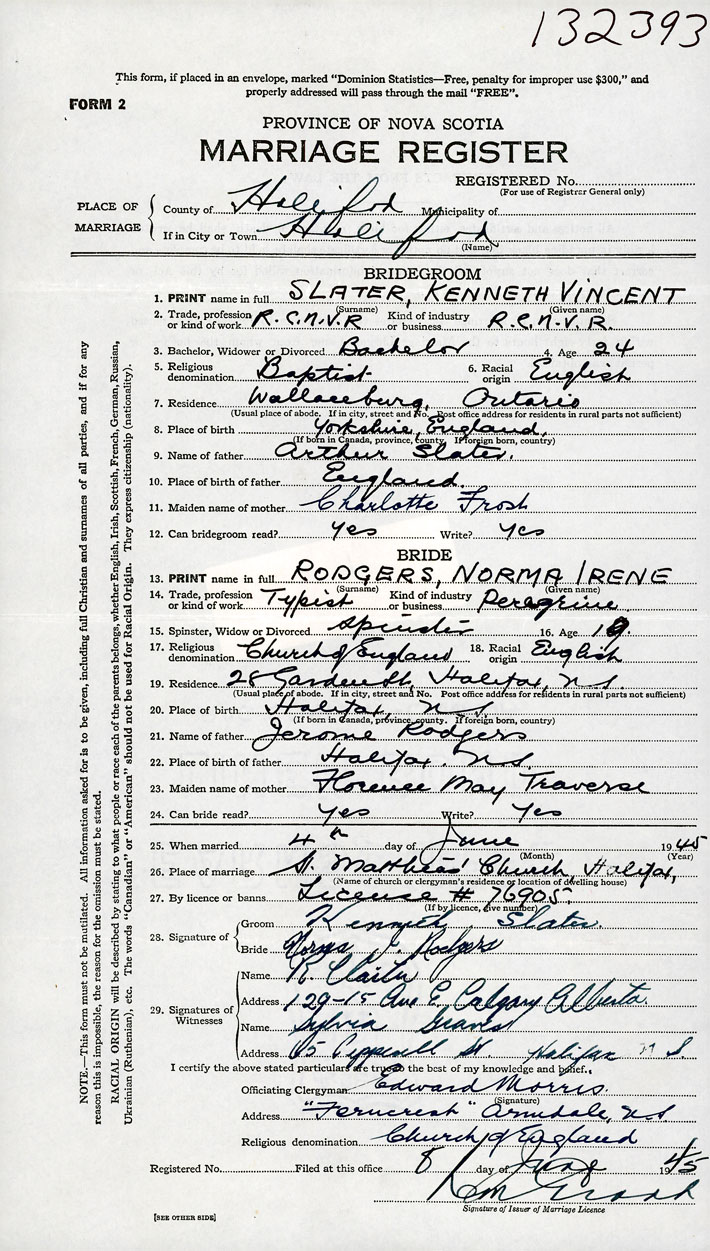 132393
This form, if placed in an envelope, marked "Dominion Statistics—Free, penalty for improper use $300," and
properly addressed will pass through the mail "FREE".
FORM 2
PROVINCE OF NOVA SCOTIA
MARRIAGE REGISTER
REGISTERED No.
(For use of Registrar General only)
PLACE OF MARRIAGE
County of Halifax Municipality of
If in City or Town Halifax
(Name)
BRIDEGROOM
1. PRINT name in full SLATER, KENNETH VINCENT
(Surname) (Given name)
2. Trade, profession or kind of work R.C.N.V.R Kind of industry or business R.C.N.V.R.
3. Bachelor, Widower or Divorced Bachelor 4. Age 24
5. Religious denomination Baptist 6. Racial origin English
7. Residence Wallaceburg, Ontario
(Usual place of abode. If in city, street and No. Post office address for residents in rural parts not sufficient)
8. Place of birth Yorkshire, England,
(If born in Canada, province, county. If foreign born, country)
9. Name of father Arthur Slater.
10. Place of birth of father England.
11. Maiden name of mother Charlotte Frost
12. Can bridegroom read? Yes Write? Yes
BRIDE
13. PRINT name in full RODGERS, NORMA IRENE
(Surname) (Given name)
14. Trade, profession or kind of work Typist Kind of industry or business Peregrine
15. Spinster, Widow or Divorced Spinster 16. Age 19.
17. Religious denomination Church of England 18. Racial origin English
19. Residence 28 Garden St, Halifax, N.S.
(Usual place of abode. If in city, street and No. Post office address for residents in rural parts not sufficient)
20. Place of birth Halifax, N.S.
(If born in Canada, province, county. If foreign born, country)
21. Name of father Jerome Rodgers
22. Place of birth of father Halifax. N.S.
23. Maiden name of mother Florence May Traverse
24. Can bride read? Yes Write? Yes
25. When married 4th day of June 1945
(Month) (Year)
26. Place of marriage St. Matthias' Church, Halifax,
(Name of church or clergyman's residence or location of dwelling house)
27. By licence or banns License # 76905.
(If by licence, give number)
28. Signature of
Groom Kenneth Slater.
Bride Norma I. Rodgers
29. Signatures of Witnesses
Name K.
Address 129-15 Ave E. Calgary Alberta.
Name Sylvia
Address 65 Pepperell St Halifax N S.
I certify the above stated particulars are true to the best of my knowledge and belief.
Officiating Clergyman Edward Morris.
(Signature)
Address "Ferncrest" Armdale, N.S
Religious denomination Church of England
Registered No. Filed at this office 8 day of June 1945
Signature of Issuer of Marriage Licence
[SEE OTHER SIDE]
NOTE.—This form must not be mutilated. All information asked for is to be given, including full Christian and surnames of all parties, and if for any
reason this is impossible, the reason for the omission must be stated.
RACIAL ORIGIN will be described by stating to what people or race each of the parents belongs, whether English, Irish, Scottish, French, German, Russian,
Ukrainian (Ruthenian), etc. The words "Canadian" or "American" should not be used for Racial Origin. They express citizenship (nationality).